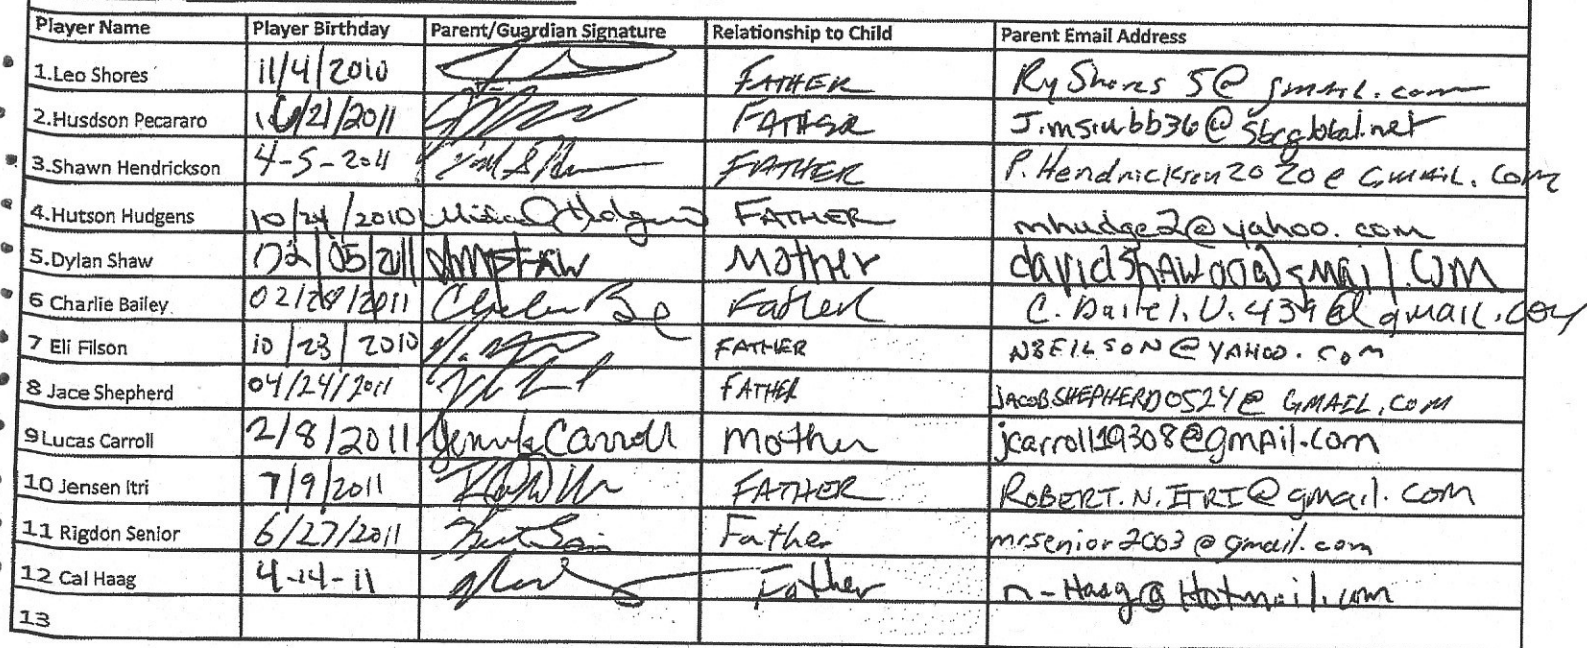 Player Name Player Birthday Parent/Guardian Signature Relationship to Child Parent Email Address
1.Leo Shores 11/4/2010 FATHER RyShores5@gmail.com
2.Husdson Pecararo /21/2011 FATHER
3.Shawn Hendrickson 4-5-2011 FATHER P.Hendrickson2020@GMAIL.COM
4.Hutson Hudgens 10/24/2010 FATHER mhudge2@yahoo.com
5.Dylan Shaw 02/05/2011 Mother
6 Charlie Bailey 02/28/2011 Father
7 Eli Filson 10/23/2010 FATHER
8 Jace Shepherd 04/24/2011 FATHER JACOBSHEPHERD0524@GMAIL.COM
9Lucas Carroll 2/8/2011 Carroll Mother jcarroll19308@gmail.com
10 Jensen Itri 7/9/2011 FATHER ROBERT.N.ITRI@gmail.com
11 Rigdon Senior 6/27/2011 Father mrsenior2003@gmail.com
12 Cal Haag 4-14-11 Father n-Haag@Hotmail.com
13